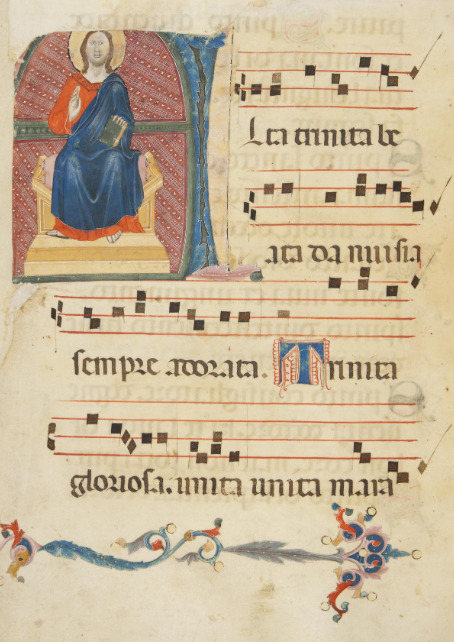 ALta trinita be
ata da nui sia
sempre adorata. Trinita
gloriosa. unita unita mara